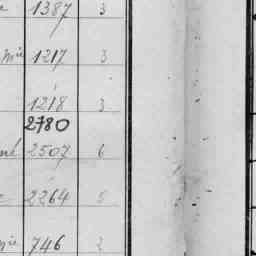 1387 3
1217 3
1218 3
2780
2507 6
2264 5
746 2